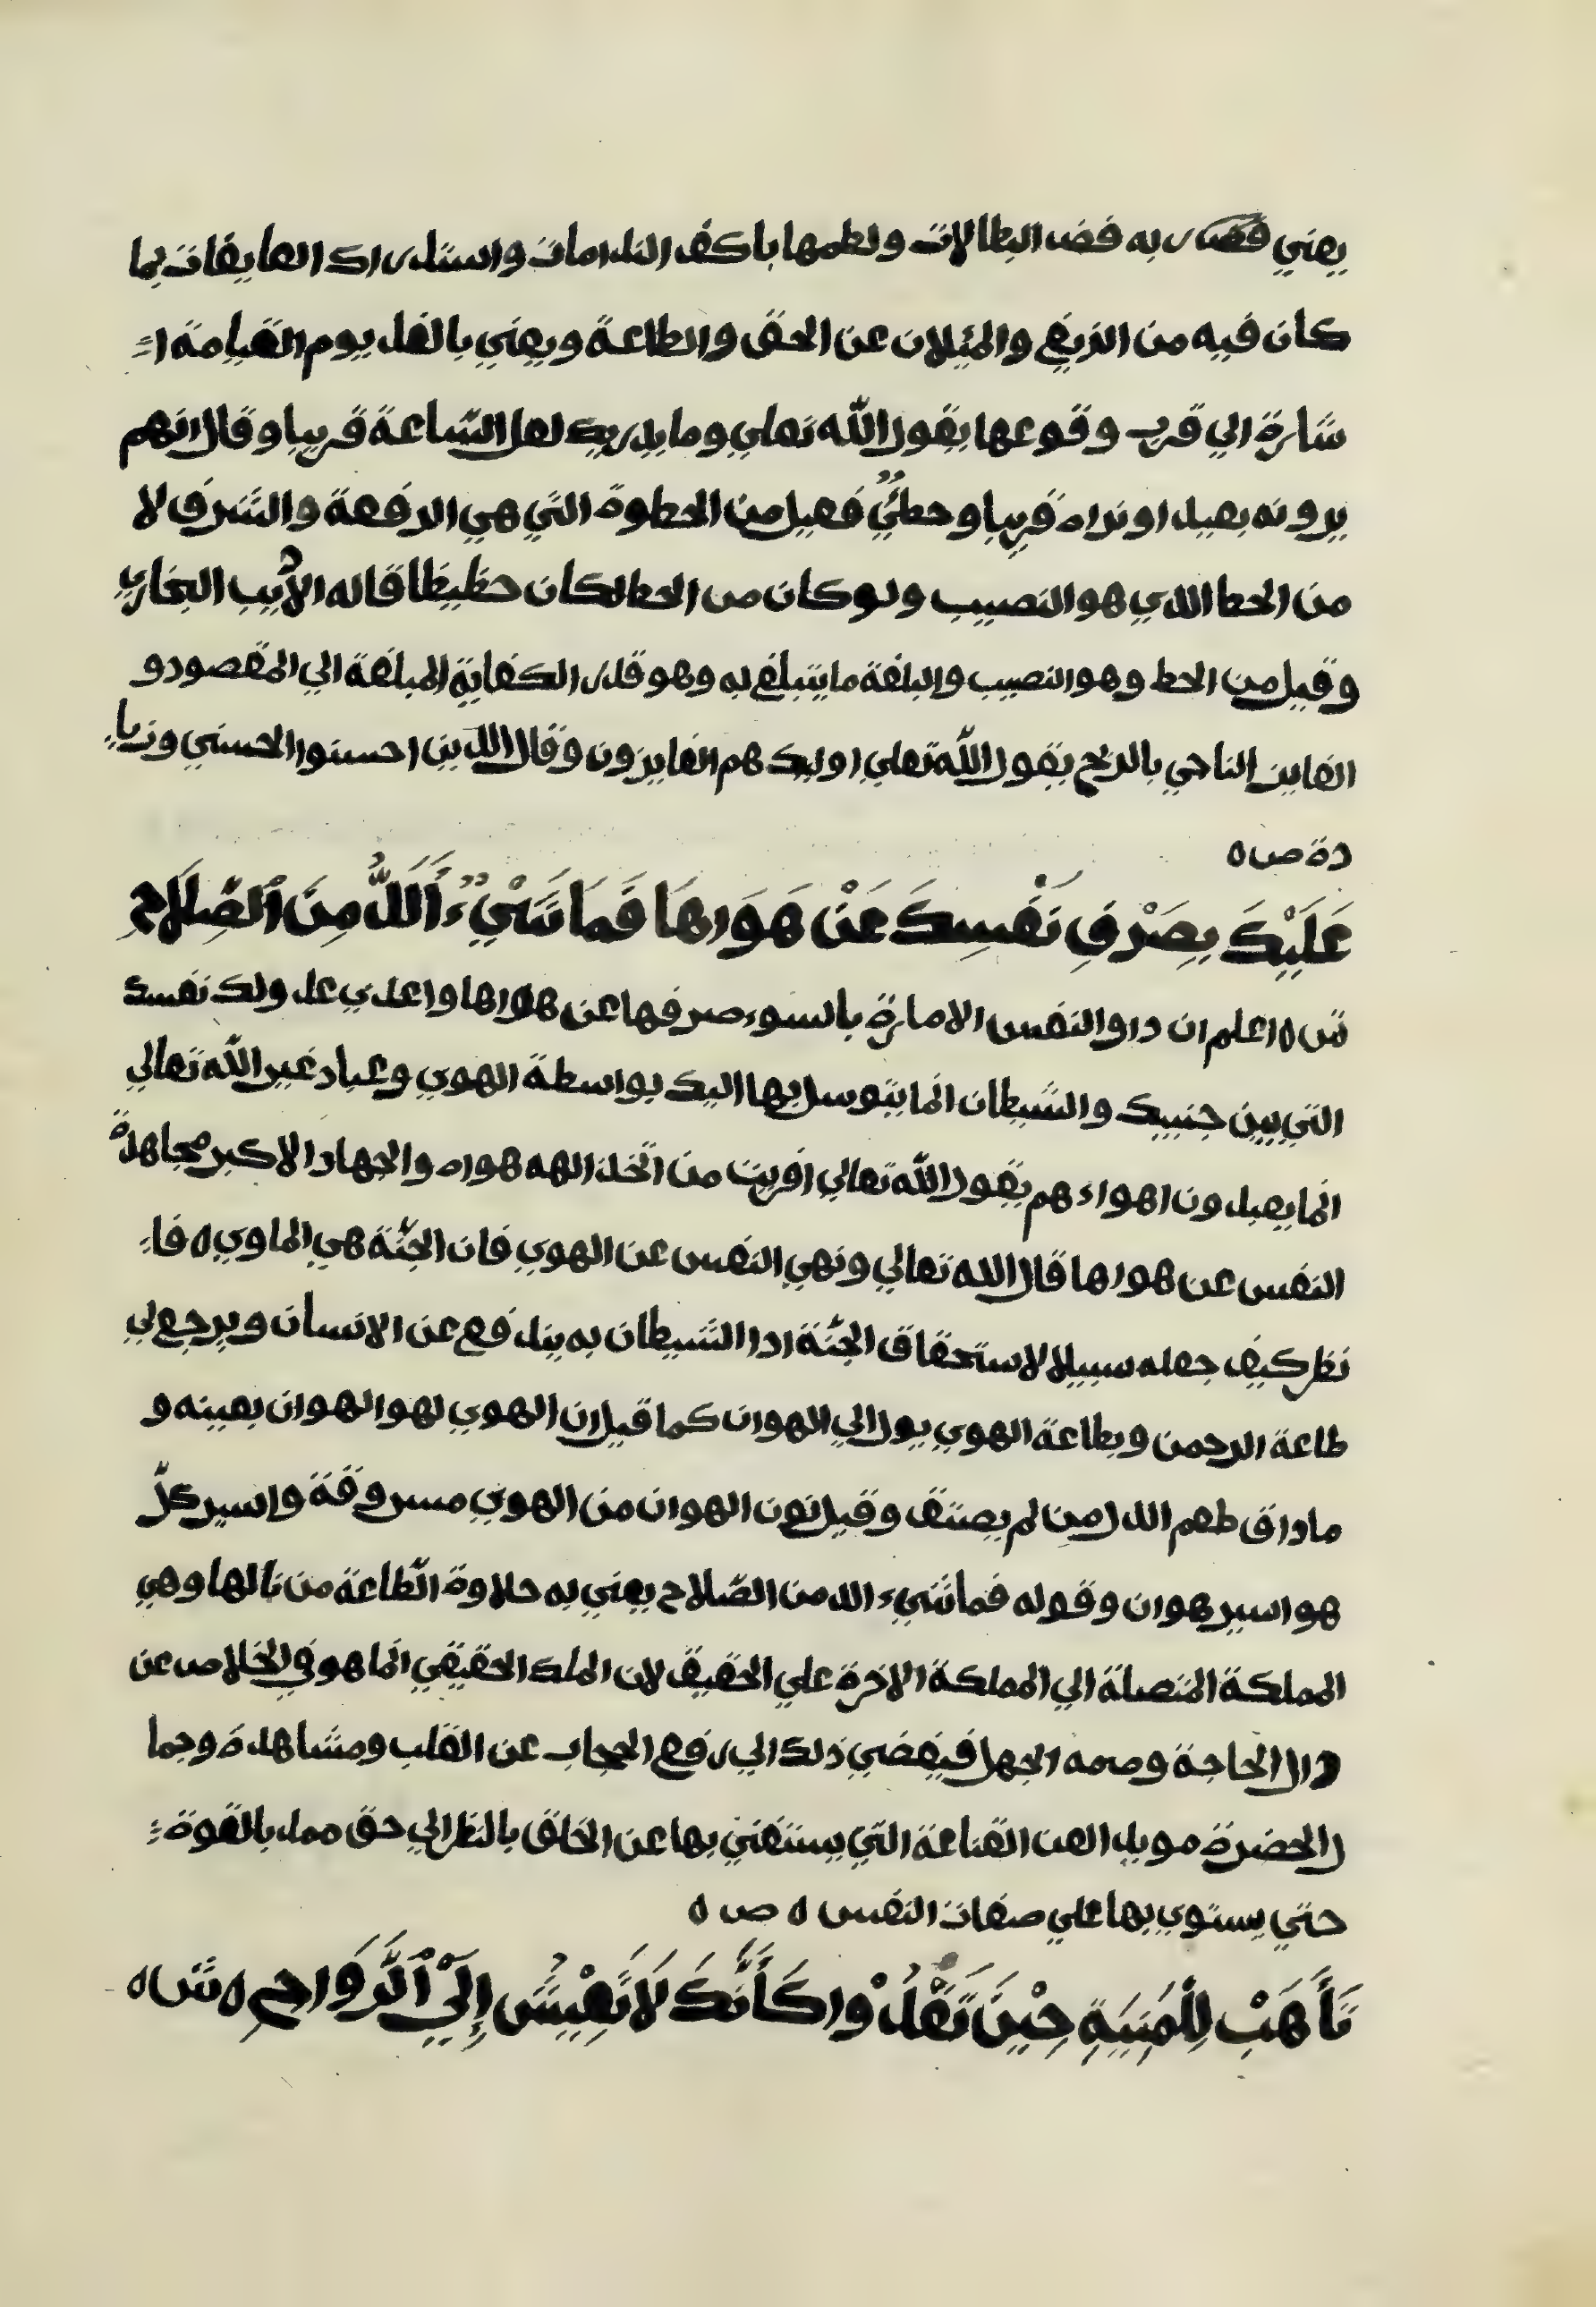 يعني فصار به فضد البطالات ولطمها باكف الندامات واستدراك العايقات بما
كان فيه من الزيغ والميلان عن الحق والطاعة ويعني بالغد يوم القيامة ا
شارة الي قرب وقوعها يقول الله تعلي وما يدريك لعل الساعة قريبا وقال انهم
يرونه بعيدا ونراه قريبا وحظيٌّ فعيل من الحظوة التي هي الرفعة والشرف لا
من الحظ الذي هو النصيب ولو كان من الحظ لكان حظيظا قاله الأديب البخاري
وقيل من الحظ وهو النصيب والبلغة ما يتبلغ به وهو قدر الكفاية المبلغة الي المقصود و
الفايز الناجي بالربح يقول الله تعلي اوليك هم الفايزون وقال للذين احسنوا الحسني وزيا
دة ص ه
عَلَيْكَ بِصَرْفِ نَفْسِكَ عَنْ هَوَاهَا فَمَا شَيْءٌ أَلَذُّ مِنَ ٱلصَّلَاحِ
ش ه اعلم ان دواء النفس الامارة بالسوء صرفها عن هواها واعدي عدولك نفسك
التي بين جنبيك والشيطان انما يتوسل بها اليك بواسطة الهوي وعباد غير الله تعالي
انما يعبدون اهواءهم يقول الله تعالي افريت من اتخذ الهه هواه والجهاد الاكبر مجاهدة
النفس عن هواها قال الله تعالي ونهي النفس عن الهوي فان الجنة هي الماوي ه فا
نظر كيف جعله سبيلا لاستحقاق الجنة اذا الشيطان به يندفع عن الانسان ويرجع لي
طاعة الرحمن وبطاعة الهوي يول الي الهوان كما قيل ان الهوي لهو الهوان بعينه و
ماذاق طعم الذل من لم يصتق وقيل نون الهوان من الهوي مسروقة واسير كلّ
هو اسير هوان وقوله فما شيء الد من الصّلاح يعني به حلاوة الطاعة من نالها وهي
المملكة المتصلة الي المملكة الاخرة علي الحقيق لان الملك الحقيقي انما هو في الخلاص عن
ذل الحاجة وصمه الجهل فيفضي ذلك الي رفع الحجاب عن القلب ومشاهدة وجما
ل الحضرة مويد العن القناعة التي يستغني بها عن الخلق بالنظر الي حق ممد بالقوة
حتي يستوي بها علي صفات النفس ه ص ه
تَأَهَّبْ لِلْمَنِيَةِ حِيْنَ تَغْدُوْا كَأَنَّكَ لَا تَعِيْشُ إِلَيٰ ٱلرَّوَاحِ ه ش ه